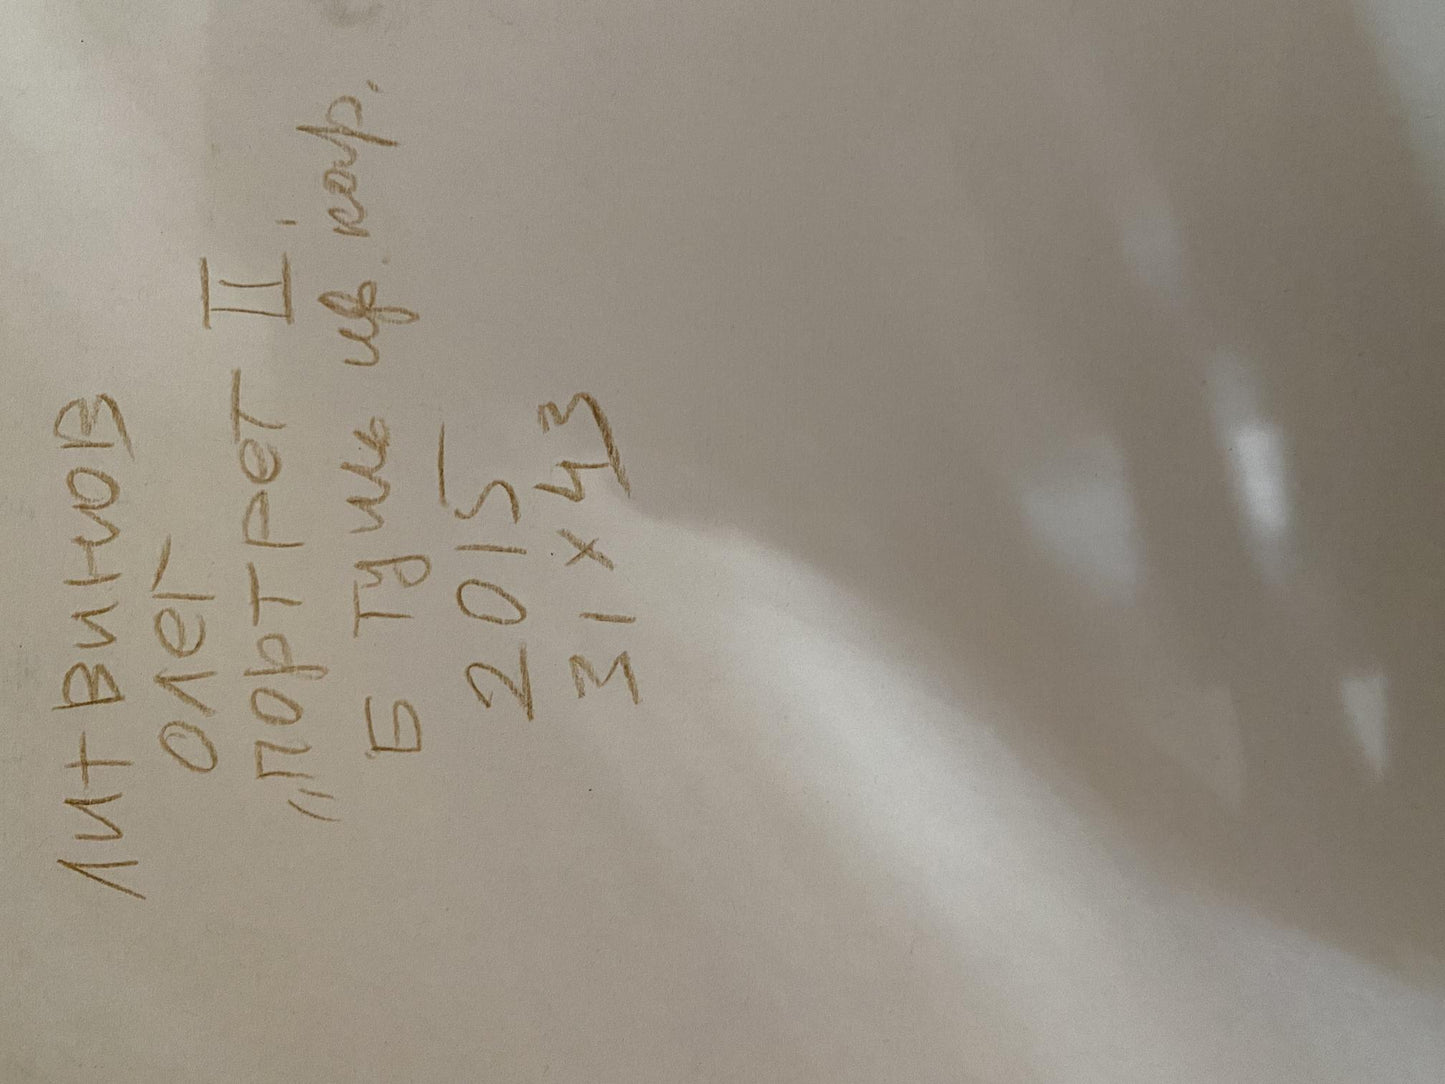 ЛИТВИНОВ
ОЛЕГ
"ПОРТРЕТ II"
Б тушь цв. кар.
2015
31 × 43